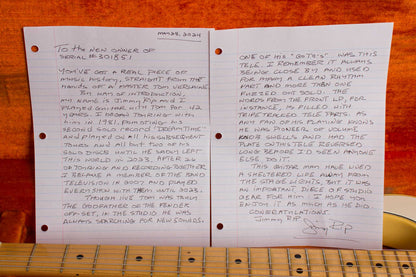 MAR 28, 2024
TO THE NEW OWNER OF
SERIAL # 301851
YOU'VE GOT A REAL PIECE OF
MUSIC HISTORY, STRAIGHT FROM THE
HANDS OF A MASTER TOM VERLAINE.
BY WAY OF INTRODUCTION,
MY NAME IS JIMMY RIP AND I
PLAYED GUITAR WITH TOM FOR 42
YEARS. I BEGAN TOURING WITH
HIM IN 1981, PROMOTING HIS
SECOND SOLO RECORD "DREAMTIME"
AND PLAYED ON ALL HIS SUBSEQUENT
TOURS AND ALL BUT TWO OF HIS
SOLO DISCS UNTIL HE SADLY LEFT
THIS WORLD IN 2023. AFTER 26
OF TOURING AND RECORDING TOGETHER
I BECAME A MEMBER OF THE BAND
TELEVISION IN 2007 AND PLAYED
EVERY SHOW WITH THEM UNTIL 2023.
THOUGH LIVE TOM WAS THE
GODFATHER OF THE FENDER
OFF-SET, IN THE STUDIO HE WAS
ALWAYS SEARCHING FOR NEW SOUNDS.
ONE OF HIS "GO TO'S" WAS THIS
TELE. I REMEMBER IT ALWAYS
BEING CLOSE BY AND USED
FOR MANY A CLEAN RHYTHM
PART AND MORE THAN ONE
FUZZED OUT SOLO. THE
WORDS FROM THE FRONT LP, FOR
INSTANCE, IS FILLED WITH
TRIPLE TRACKED TELE PARTS. AS
ANY FAN OF HIS PLAYING KNOWS
HE WAS PIONEER OF VOLUME
KNOB SWELLS AND HAD THE
PLATE ON THIS TELE REVERSED
LONG BEFORE I'D SEEN ANYONE
ELSE DO IT.
THIS GUITAR MAY HAVE LIVED
A SHELTERED LIFE AWAY FROM
THE STAGE LIGHTS, BUT IT WAS
AN IMPORTANT PIECE OF STUDIO
GEAR FOR HIM. I HOPE YOU
ENJOY IT AS MUCH AS HE DID.
CONGRATULATIONS.
JIMMY RIP
Jimmy Rip